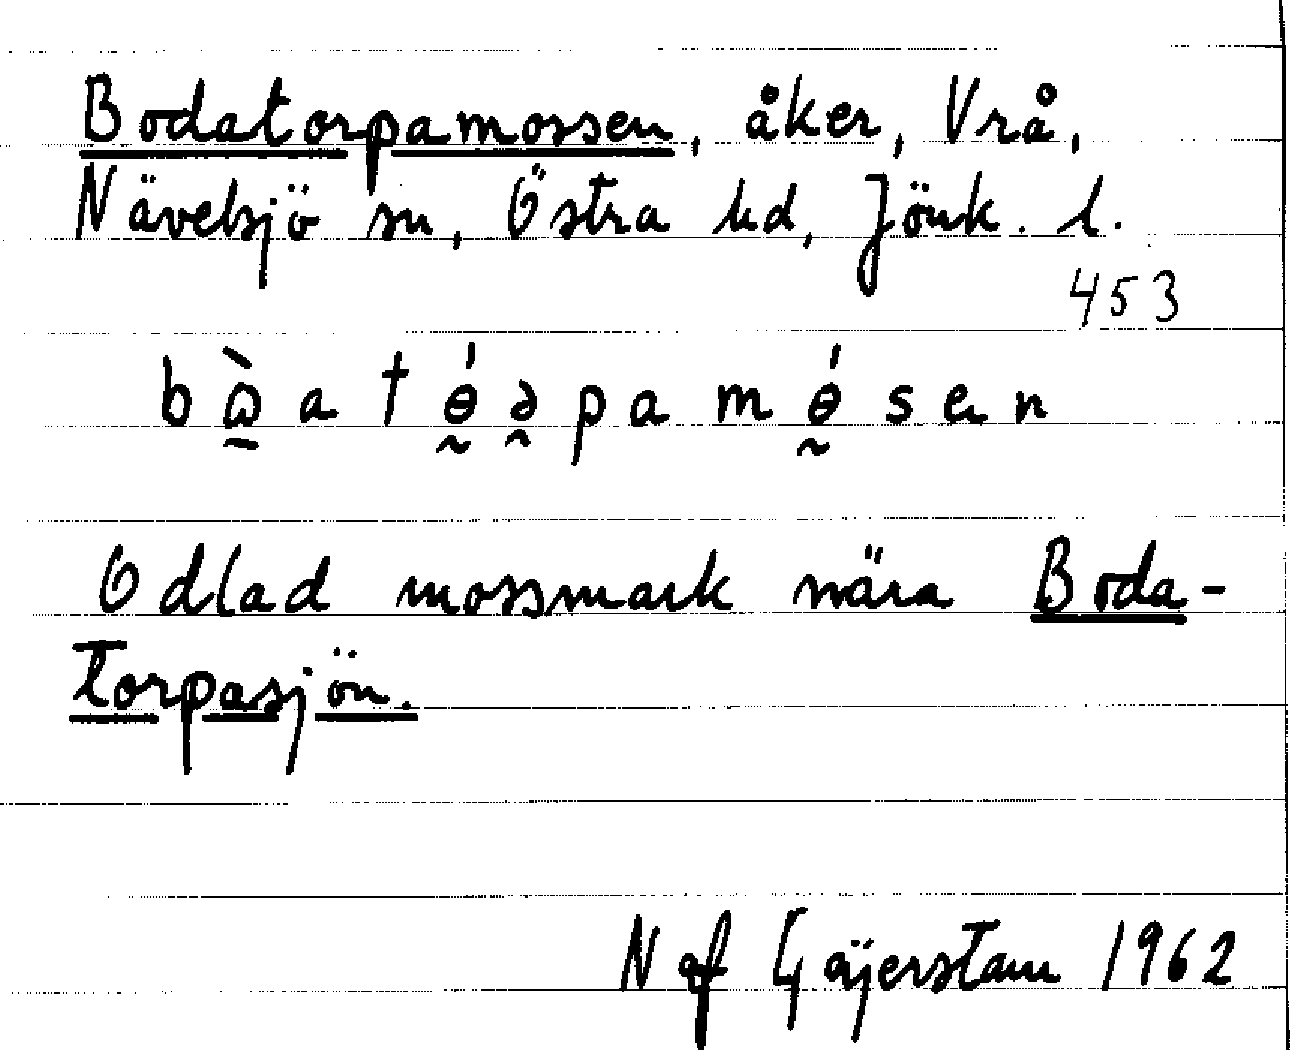 Bodatorpamossen, åker, Vrå,
Nävelsjö sn, Östra hd, Jönk. l.
453
bɷ̀atɵ́əpamɵ́sen
Odlad mossmark nära Boda-
torpasjön.
N af Geijerstam 1962